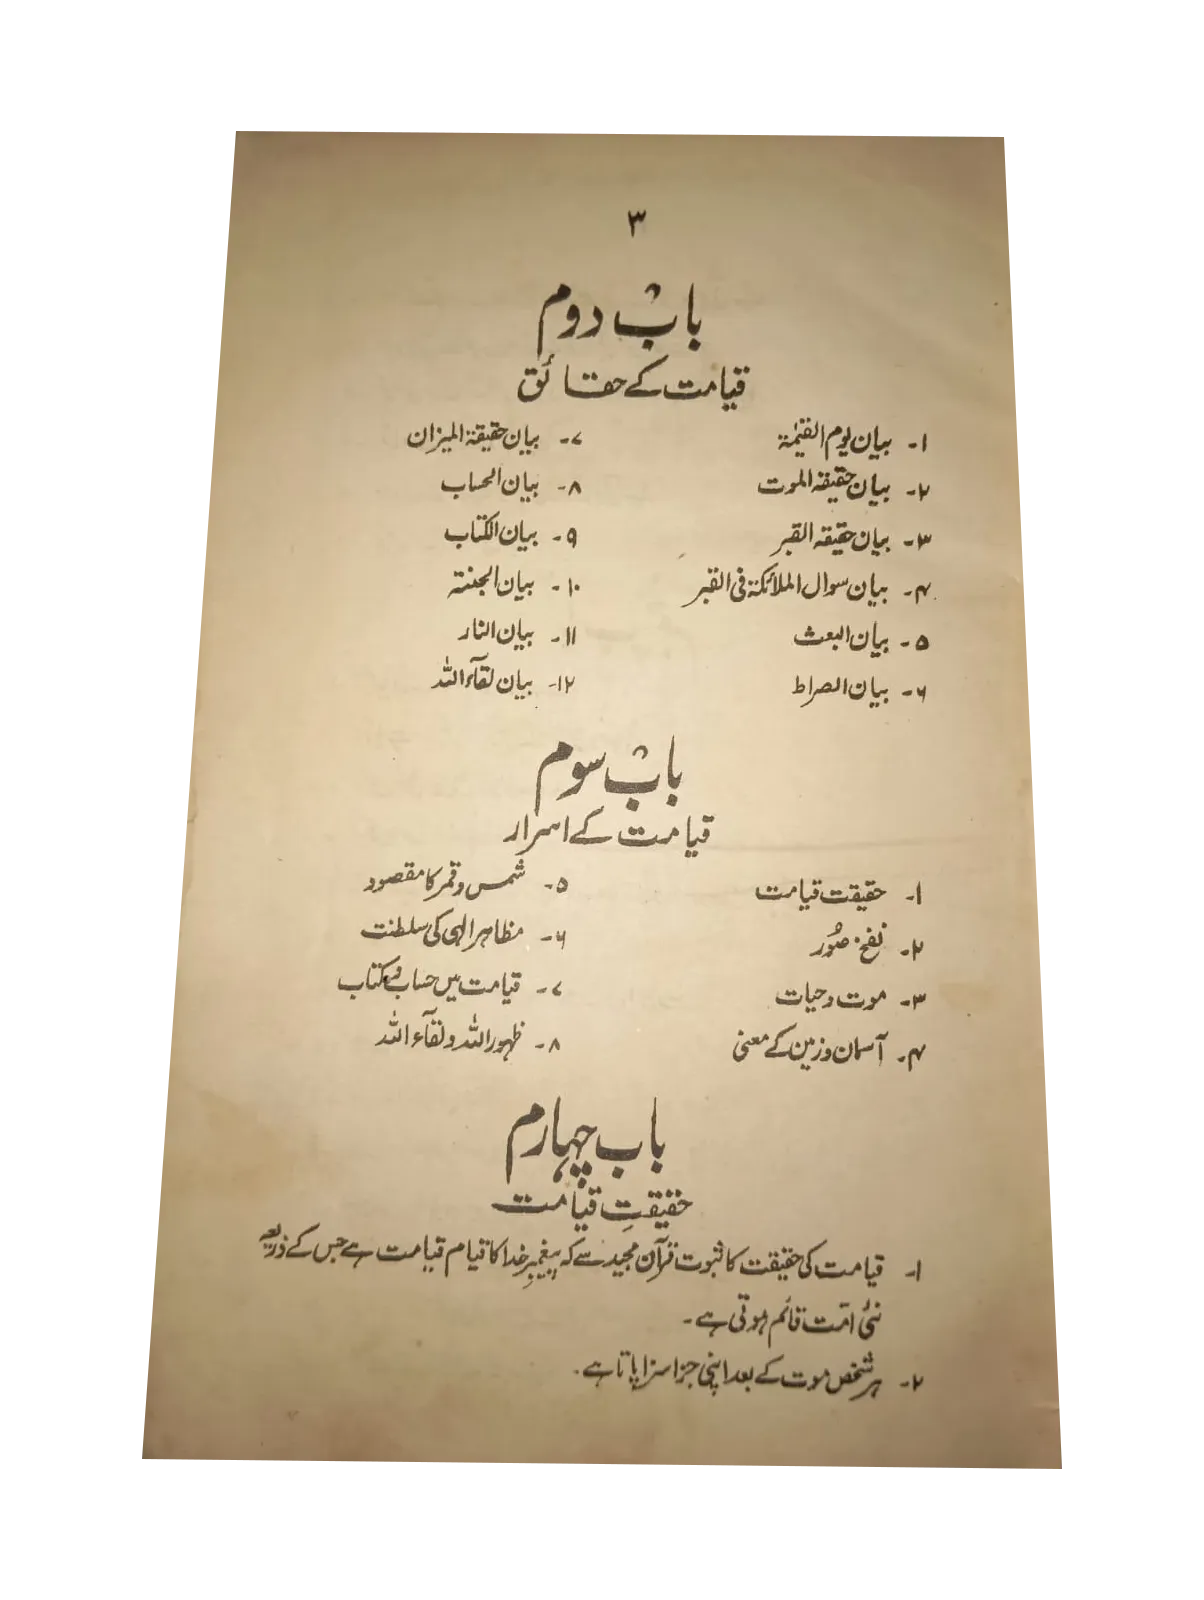 ۳
باب دوم
قیامت کے حقائق
۱- بیان یوم القیٰمۃ
۲- بیان حقیقۃ الموت
۳- بیان حقیقۃ القبر
۴- بیان سوال الملائکۃ فی القبر
۵- بیان البعث
۶- بیان الصراط
۷- بیان حقیقۃ المیزان
۸- بیان الحساب
۹- بیان الکتاب
۱۰- بیان الجنتہ
۱۱- بیان النار
۱۲- بیان لقآء اللہ
باب سوم
قیامت کے اسرار
۱- حقیقت قیامت
۲- نفخ صُور
۳- موت و حیات
۴- آسمان و زمین کے معنی
۵- شمس و قمر کا مقصود
۶- مظاہر الٰہی کی سلطنت
۷- قیامت میں حساب و کتاب
۸- ظہور اللہ و لقآء اللہ
باب چہارم
حقیقتِ قیامت
۱- قیامت کی حقیقت کا ثبوت قرآن مجید سے کہ پیغمبرِ خدا کا قیام قیامت ہے جس کے ذریعہ
نئی امّت قائم ہوتی ہے۔
۲- ہر شخص موت کے بعد اپنی جزا سزا پاتا ہے۔